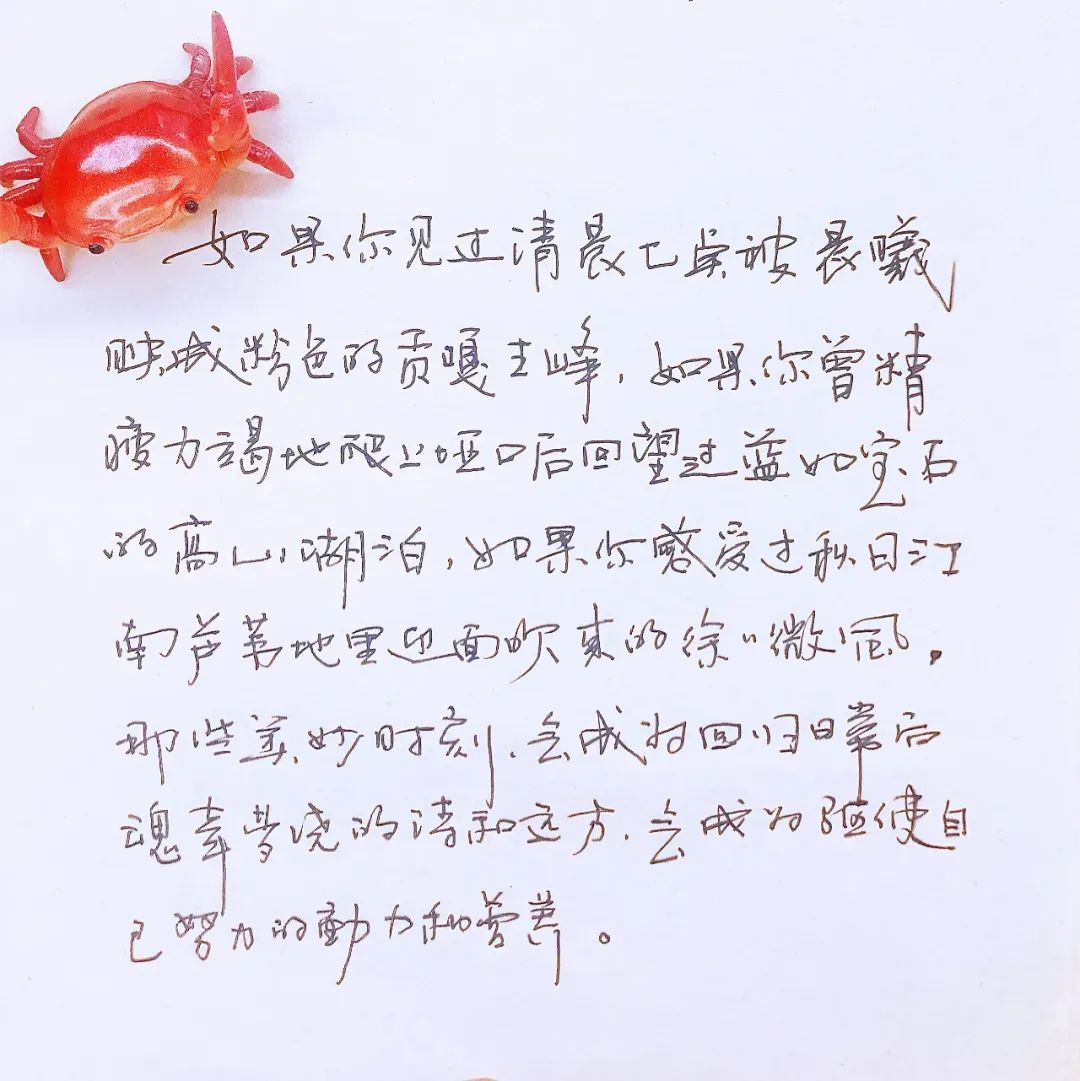 如果你见过清晨七点被晨曦
映成粉色的贡嘎主峰，如果你曾精
疲力竭地爬上垭口后回望过蓝如宝石
的高山湖泊，如果你感受过秋日江
南芦苇地里迎面吹来的徐〃微风，
那些美妙时刻，会成为回归日常后
魂牵梦绕的诗和远方，会成为驱使自
己努力的動力和营养。